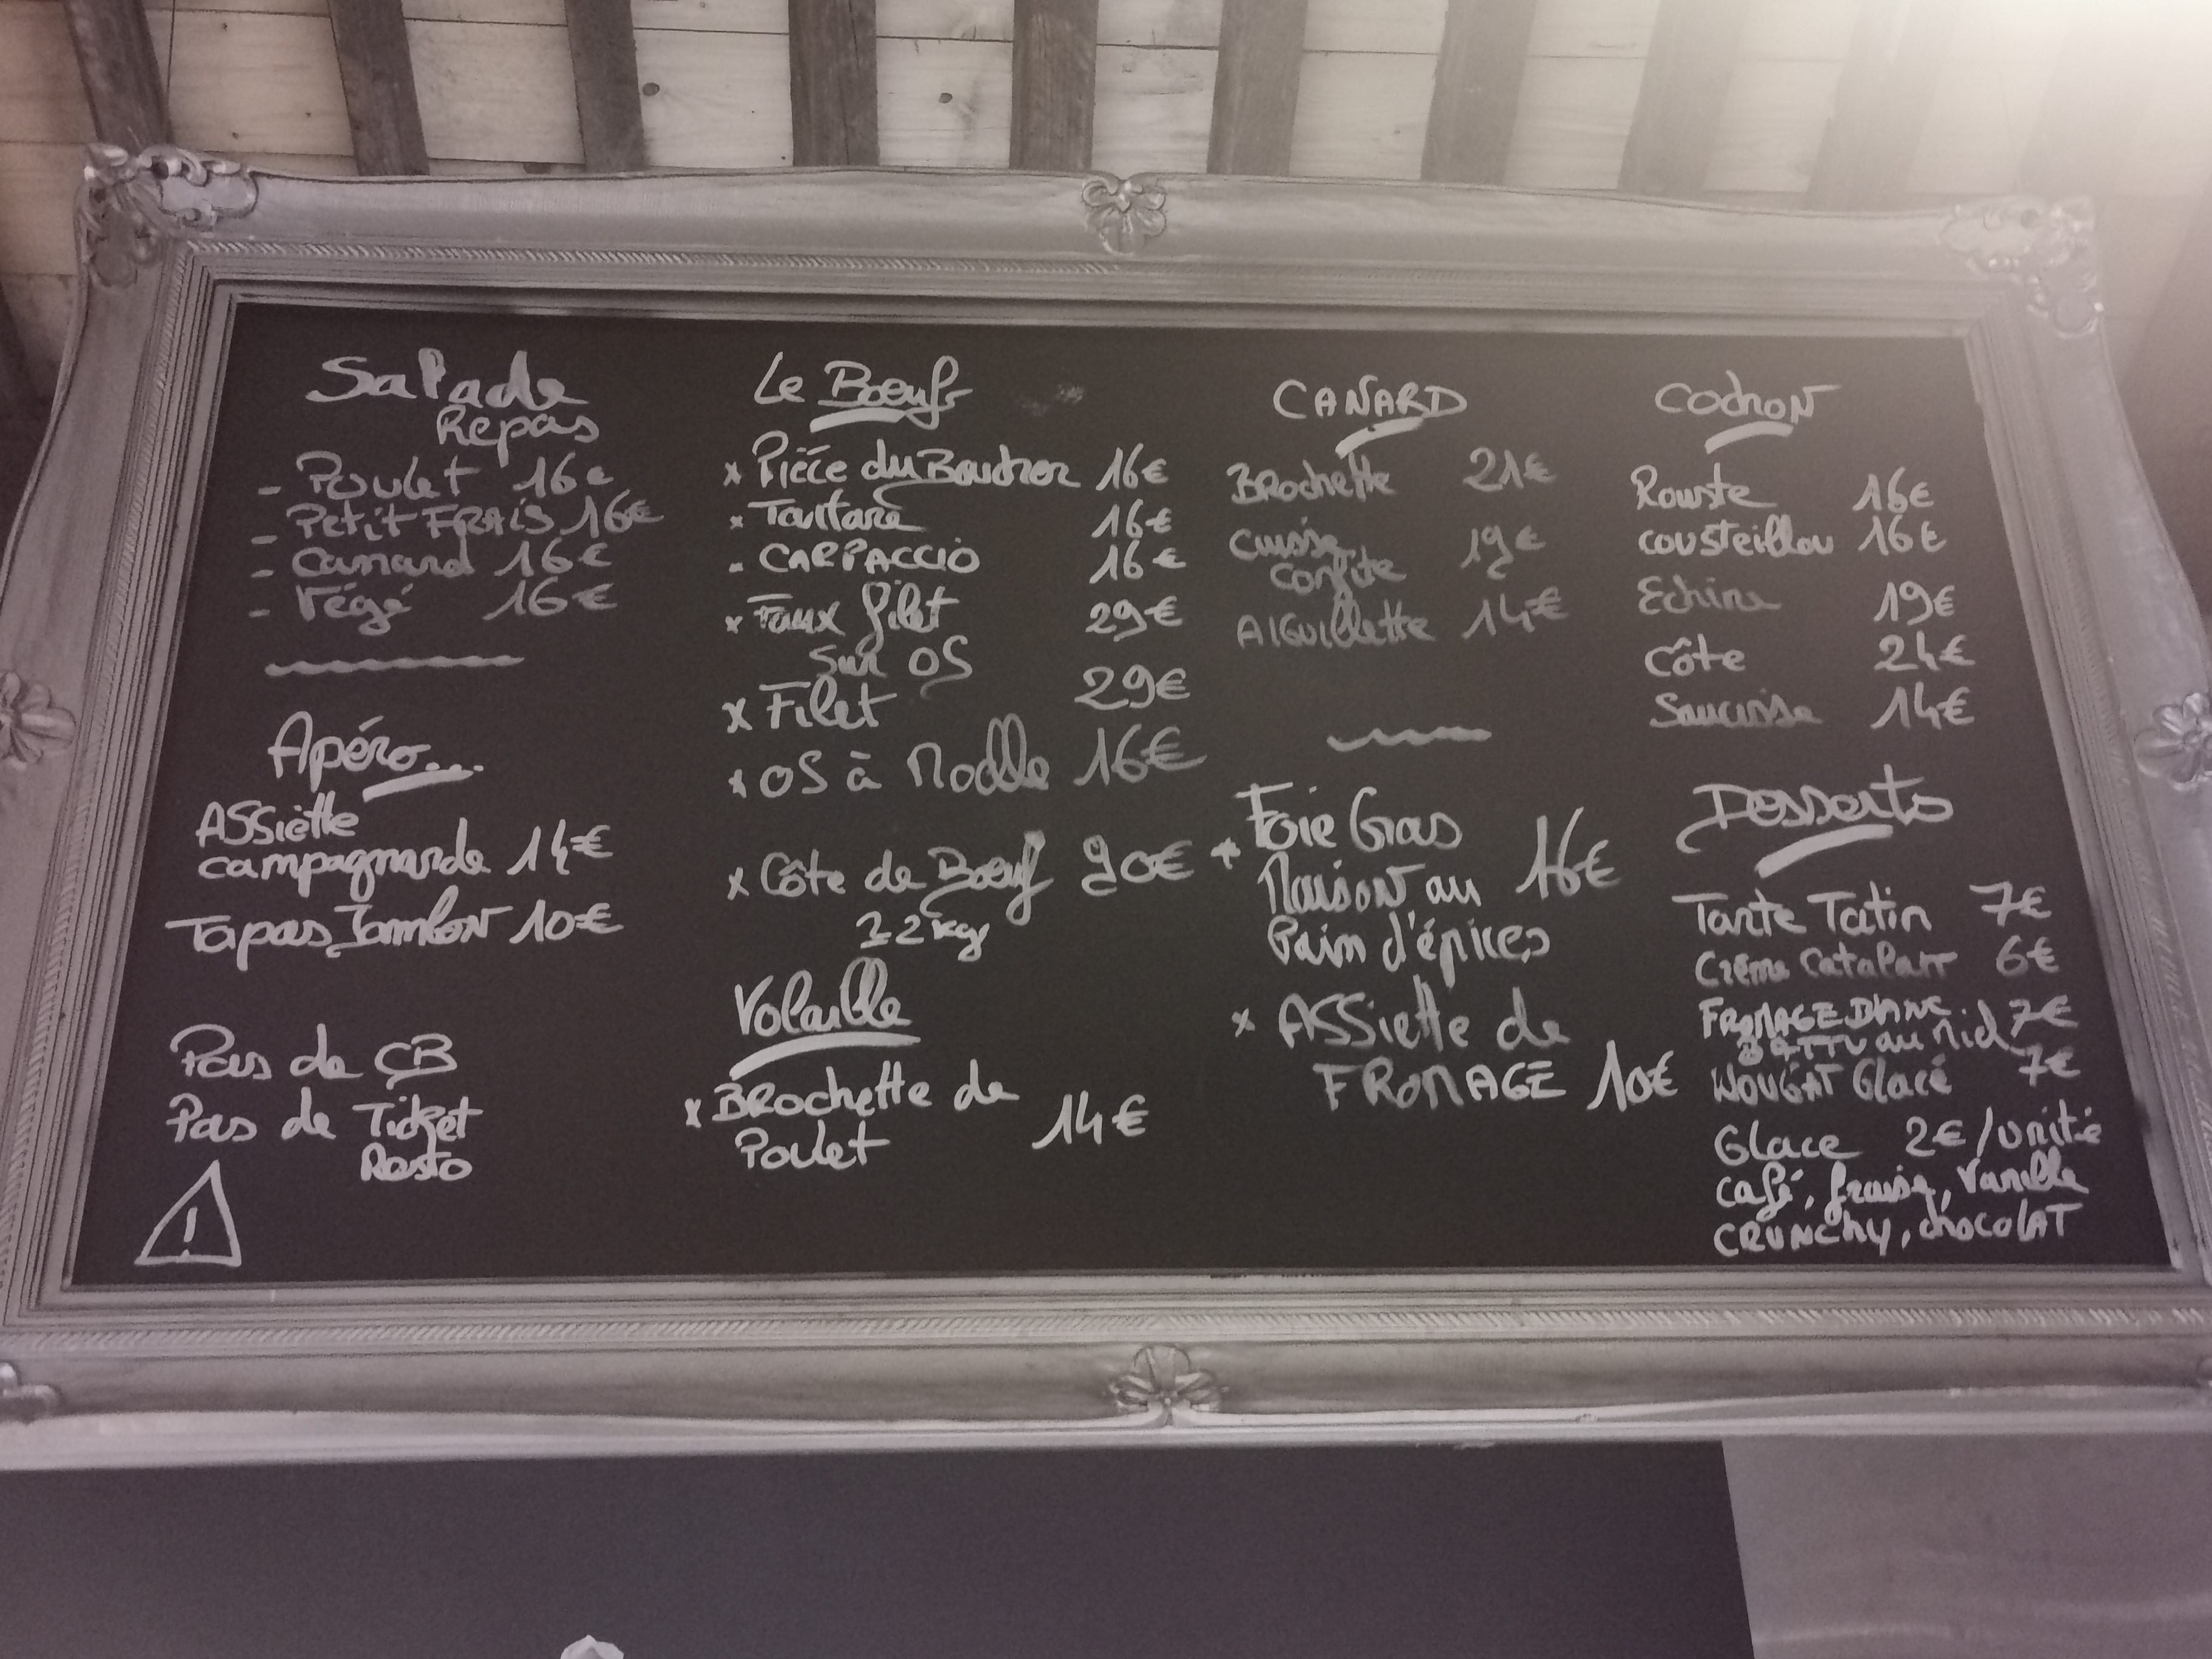 Salade
Repas
- Poulet 16€
- Petit FRAIS 16€
- Canard 16€
- Végé 16€
Apéro...
ASSiette
campagnarde 14€
Tapas Jambon 10€
Pas de CB
Pas de Ticket
Resto
!
Le Boeuf
x Pièce du Boucher 16€
x Tartare 16€
- CARPACCIO 16€
x Faux filet 29€
sur OS
x Filet 29€
x OS à Moelle 16€
x Côte de Boeuf 90€
1.2 kg
Volaille
x BRochette de
Poulet 14€
CANARD
BRochette 21€
Cuisse 19€
Confite
AIGUillette 14€
+ Foie Gras
Maison au 16€
Pain d'épices
x ASSiette de
FROMAGE 10€
CochoN
Rouste 16€
cousteillou 16€
Echine 19€
Côte 24€
Saucisse 14€
Desserts
Tarte Tatin 7€
Crème Catalan 6€
FROMAGE Blanc
BATTU au Nid 7€
NOUGAT Glacé 7€
Glace 2€/unité
café, fraise, Vanille
CRUNChy, chocolAT